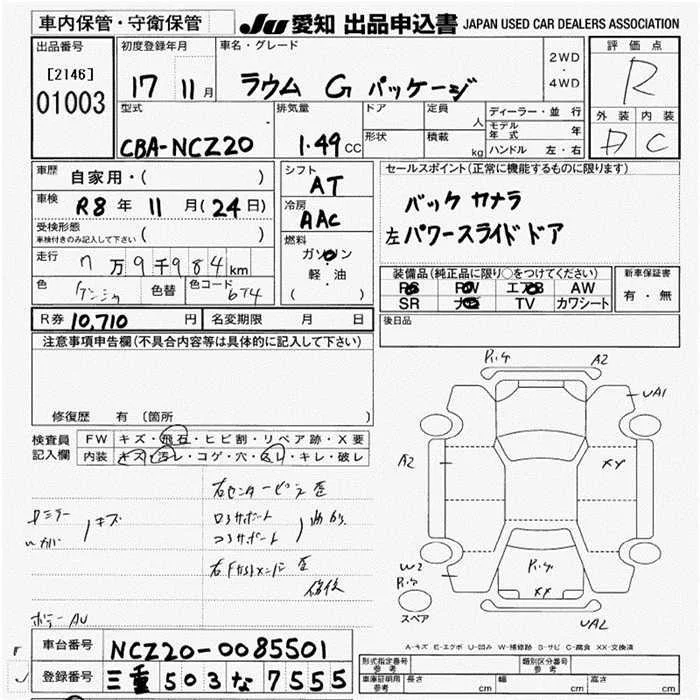 車内保管・守衛保管
JU 愛知 出品申込書 JAPAN USED CAR DEALERS ASSOCIATION
出品番号
[2146]
01003
初度登録年月
17 11月
車名・グレード
ラウム G パッケージ
2WD
・
4WD
評価点
R
外装 内装
D C
型式
CBA-NCZ20
排気量
1.49CC
ドア
形状
定員 人
積載 kg
ディーラー・並行
モデル年式 年
ハンドル 左・右
車歴 自家用・( )
車検 R8年 11月(24日)
受検形態
車検付きのみ記入して下さい ( )
走行 7万9千984km
色 色替 色コード 6T4
シフト
AT
冷房
AAC
燃料
ガソリン
・
軽・油
( )
セールスポイント(正常に機能するものに限ります)
バック カメラ
左パワースライドドア
装備品(純正品に限り○をつけてください)
PS PW エアB AW
SR ナビ TV カワシート
新車保証書
有・無
R券 10,710 円 名変期限 月 日
後日品
注意事項申告欄(不具合内容等は具体的に記入して下さい)
修復歴 有 〔箇所 〕
検査員
記入欄
FW キズ・飛石・ヒビ割・リペア跡・X要
内装 キズ・汚レ・コゲ・穴・スレ・キレ・破レ
キズ
右センターピラ歪
コアサポート
曲がり
修復
ボデーAU
A2
UA1
A2
XY
W2
XX
UA2
スペア
A-キズ E-エクボ U-凹み W-補修跡 S-サビ C-腐食 XX-交換済
車台番号 NCZ20-0085501
登録番号 三重 503 な 7555
型式指定番号
参考
類別区分番号
参考
車庫証明用
参考
長さ cm 幅 cm 高さ cm